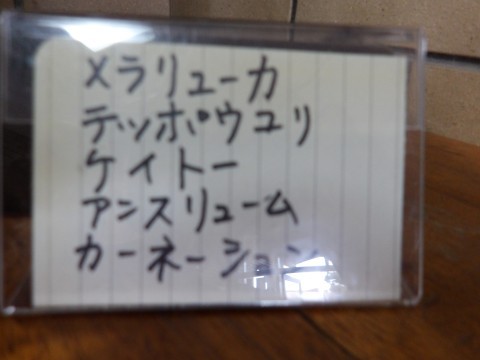 メラリューカ
テッポウユリ
ケイトー
アンスリューム
カーネーション